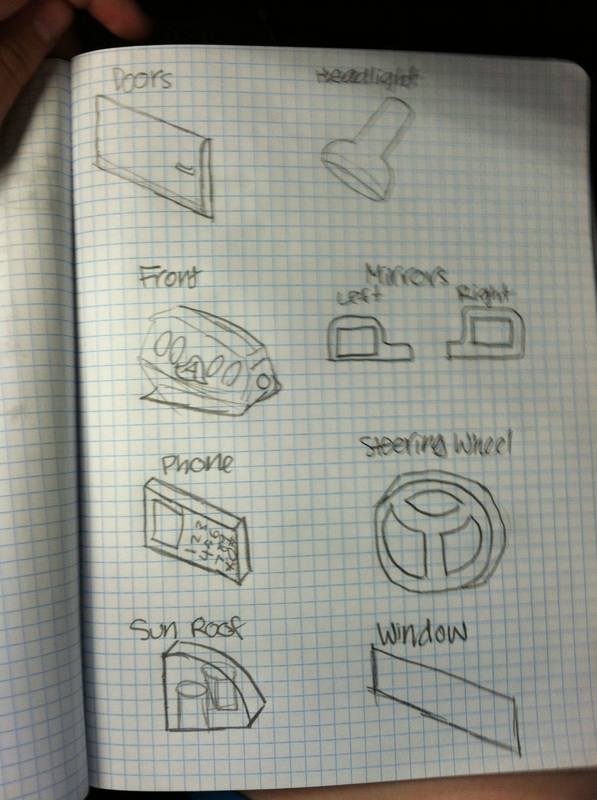 Doors
Headlight
Front
Mirrors
Left
Right
Phone
1 2 3
4 5 6
7 8 9
* 0 #
Steering Wheel
Sun Roof
Window